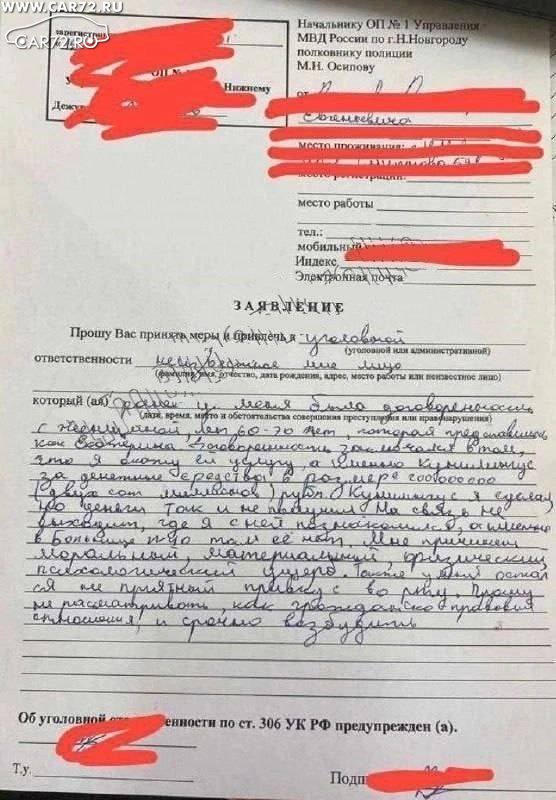 WWW.CAR72.RU
CAR72.RU
зарегистри
ОП №
Нижнему
Дежу
Начальнику ОП № 1 Управления
МВД России по г.Н.Новгороду
полковнику полиции
М.Н. Осипову
от
Евгеньевича
место проживания:
место регистрации:
место работы
тел.:
мобильный
Индекс
Электронная почта
ЗАЯВЛЕНИЕ
Прошу Вас принять меры и привлечь к уголовной
(уголовной или административной)
ответственности неизвестное мне лицо
(фамилия, имя, отчество, дата рождения, адрес, место работы или неизвестное лицо)
который (ая) у меня была договоренность
(дата, время, место и обстоятельства совершения преступления или правонарушения)
с женщиной, лет 60-70 лет, которая представилась
как Екатерина. Договоренность заключалась в том,
что я окажу ей услугу, а именно Куннилингус
за денежные средства в размере 200000000
(двухсот миллионов) рубл. Куннилингус я сделал,
но деньги так и не получил. На связь не
выходит, где я с ней познакомился, а именно
в Больнице №40 там её нет. Мне причинен
моральный, материальный, физический,
психологический ущерб. Также у меня остал
ся не приятный привкус во рту. Прошу
не рассматривать, как гражданско правовые
отношения, и срочно возбудить
Об уголовной от енности по ст. 306 УК РФ предупрежден (а).
Т.у.
Подп